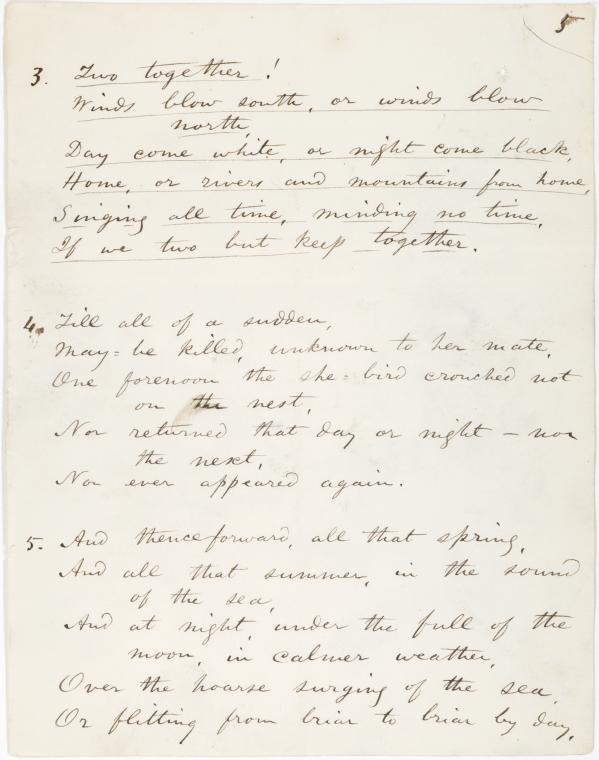 5
3. Two together!
Winds blow south, or winds blow
north,
Day come white, or night come black,
Home, or rivers and mountains from home,
Singing all time, minding no time,
If we two but keep together.
4. Till all of a sudden,
May-be killed, unknown to her mate,
One forenoon the she-bird crouched not
on the nest,
Nor returned that day or night — nor
the next,
Nor ever appeared again.
5. And thenceforward, all that spring,
And all that summer, in the sound
of the sea,
And at night, under the full of the
moon, in calmer weather,
Over the hoarse surging of the sea,
Or flitting from briar to briar by day,